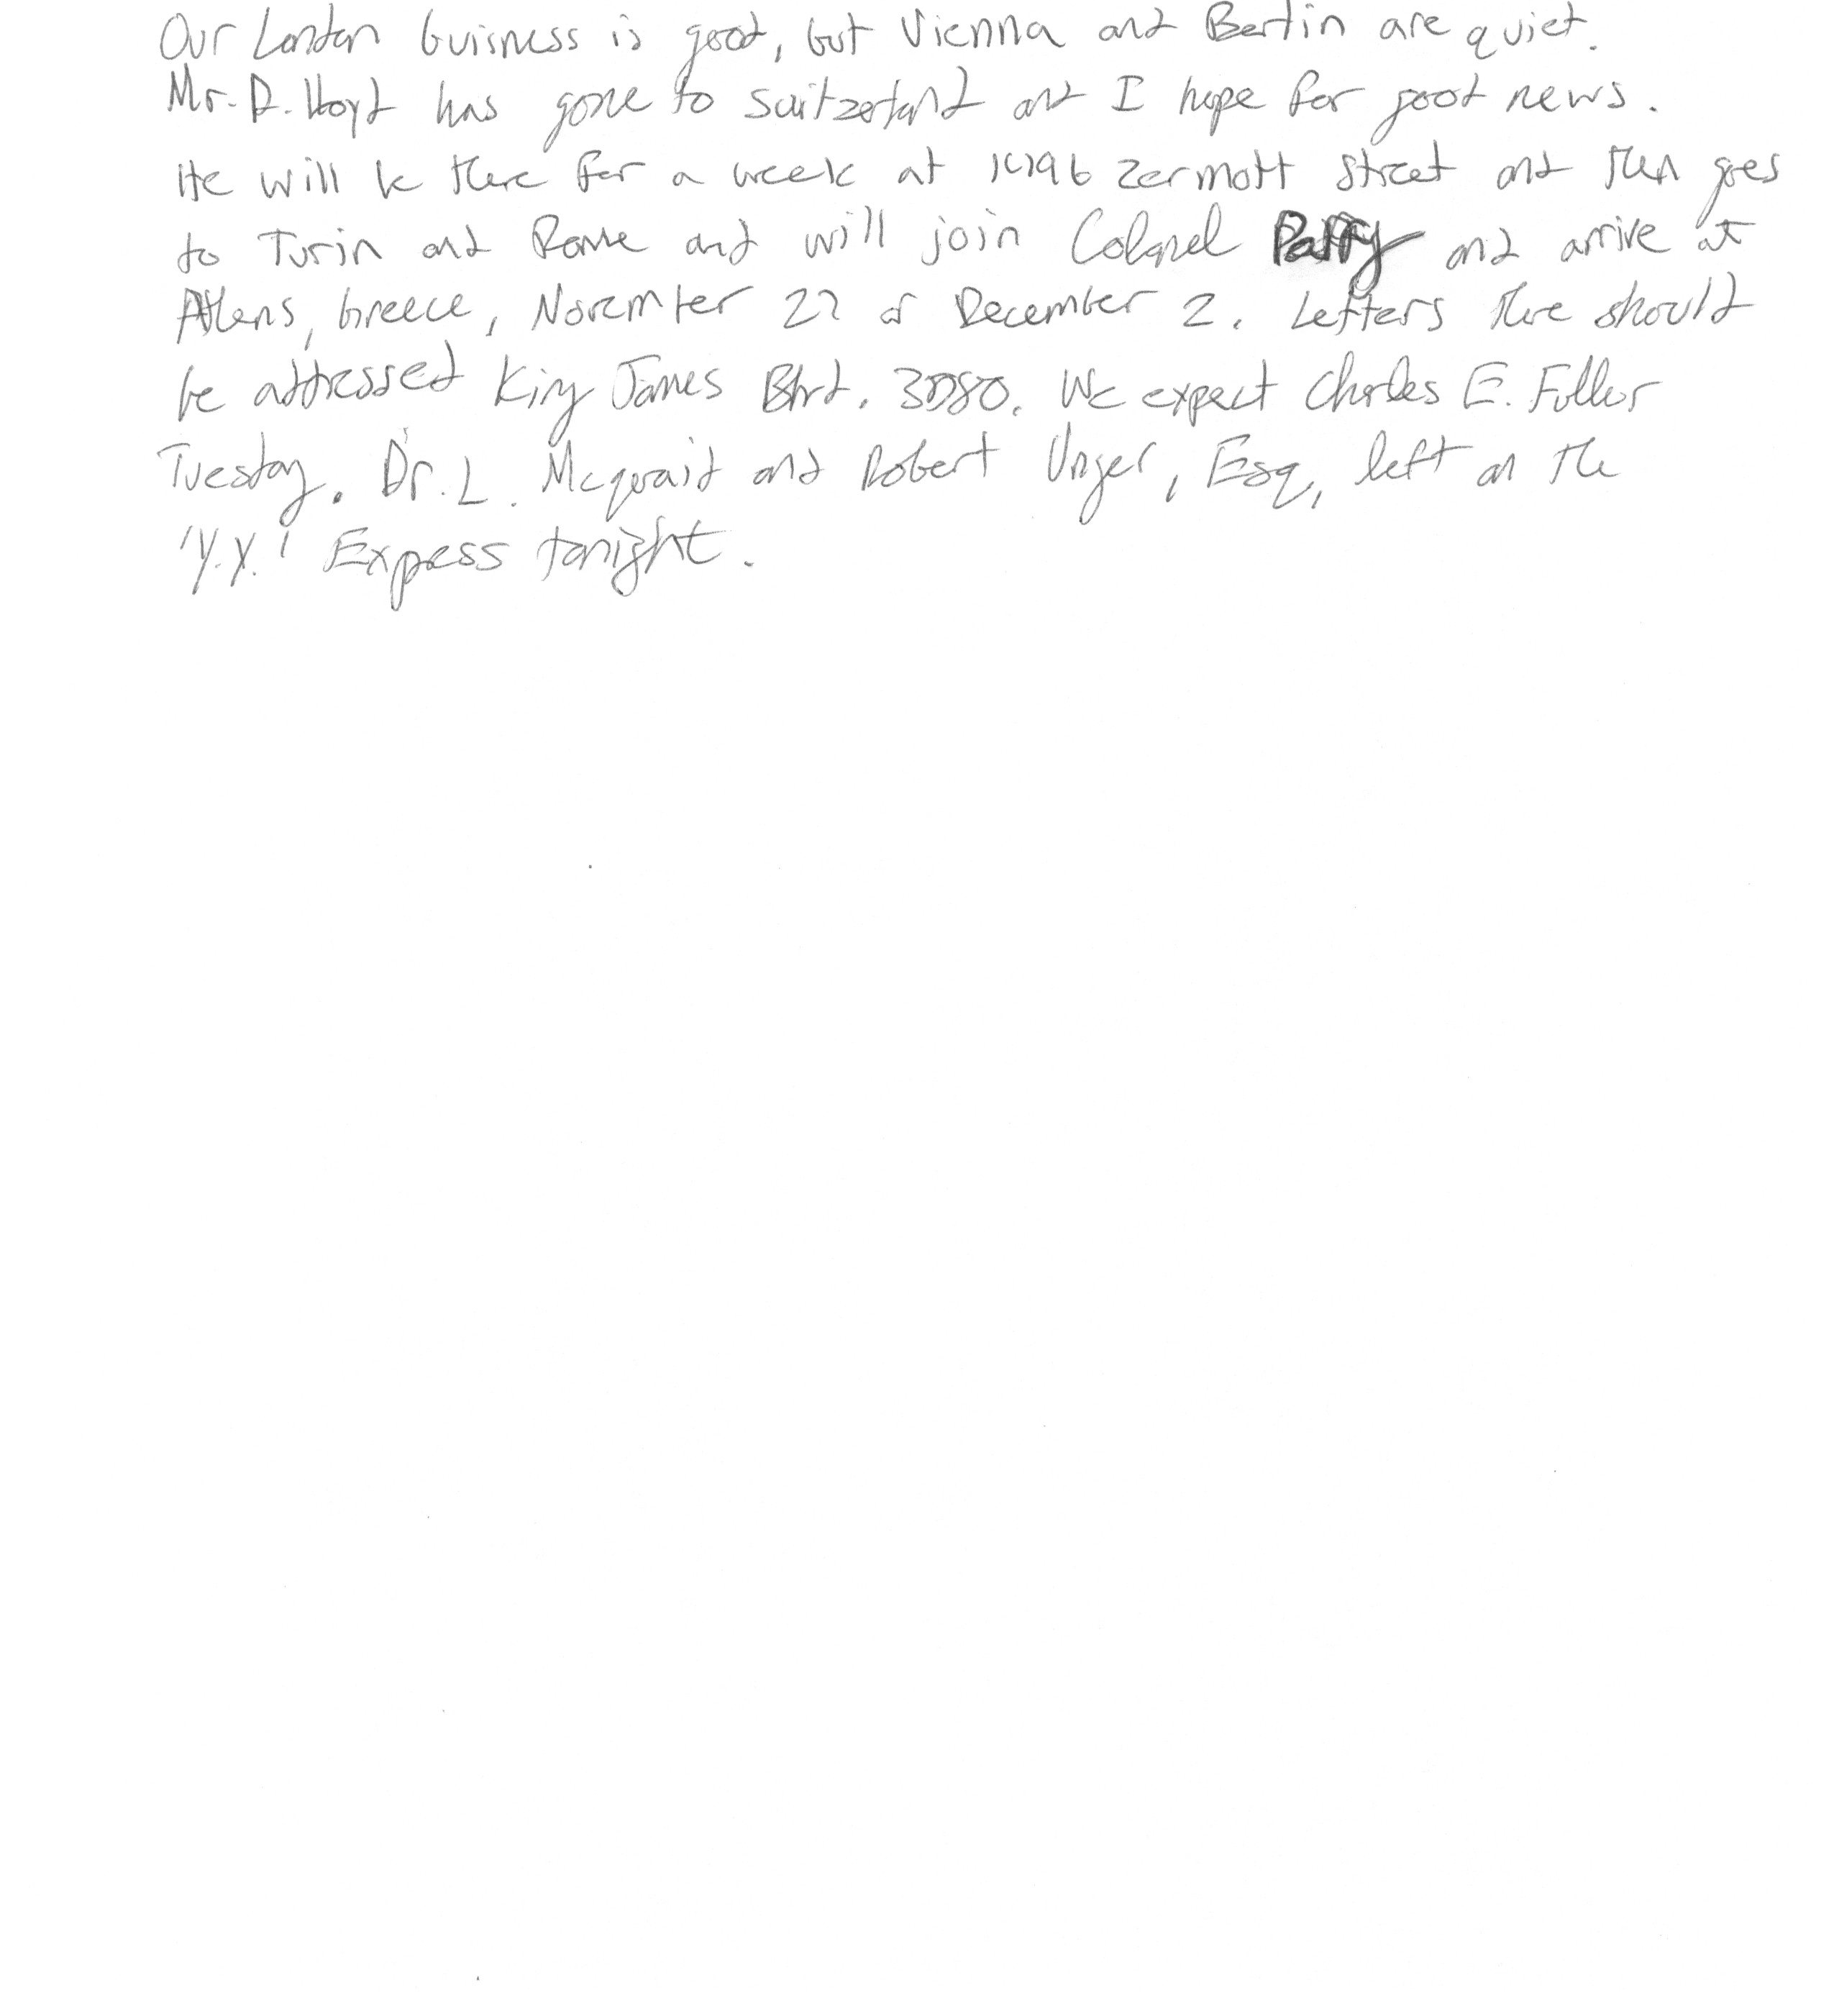 Our London buisness is good, but Vienna and Berlin are quiet.
Mr. D. Hoyt has gone to Switzerland and I hope for good news.
He will be there for a week at 1496 Zermott Street and then goes
to Turin and Rome and will join Colonel Parry and arrive at
Athens, Greece, November 27 or December 2. Letters there should
be addressed King James Blvd. 3080. We expect Charles E. Fuller
Tuesday. Dr. L. Mcquaid and Robert Unger, Esq, left on the
'Y.X.' Express tonight.